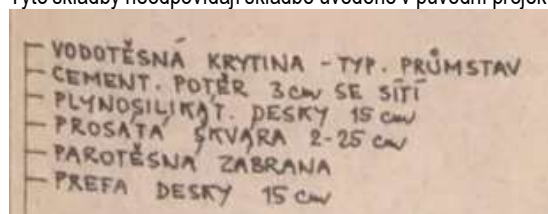 Tyto skladby neodpovídají skladbě uvedené v původní projek
VODOTĚSNÁ KRYTINA - TYP. PRŮMSTAV
CEMENT. POTĚR 3cm SE SÍTÍ
PLYNOSILIKÁT. DESKY 15 cm
PROSÁTÁ ŠKVÁRA 2-25 cm
PAROTĚSNÁ ZÁBRANA
PREFA DESKY 15 cm